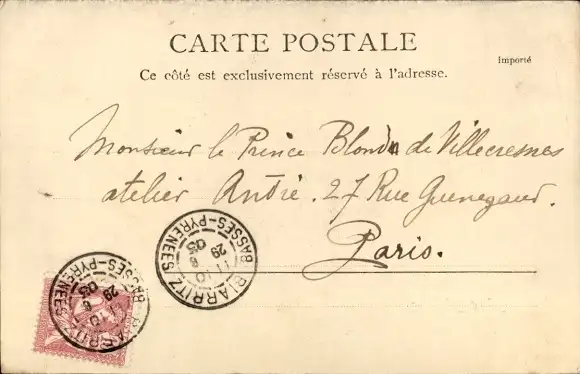 CARTE POSTALE
Importé
Ce côté est exclusivement réservé à l'adresse.
Monsieur le Prince Blond de Villecresnes
atelier André. 27 Rue Guenegaud.
Paris.
BIARRITZ
BASSES-PYRENEES
11 10
29 8
03
BIARRITZ
BASSES-PYRENEES
10
29 8
03